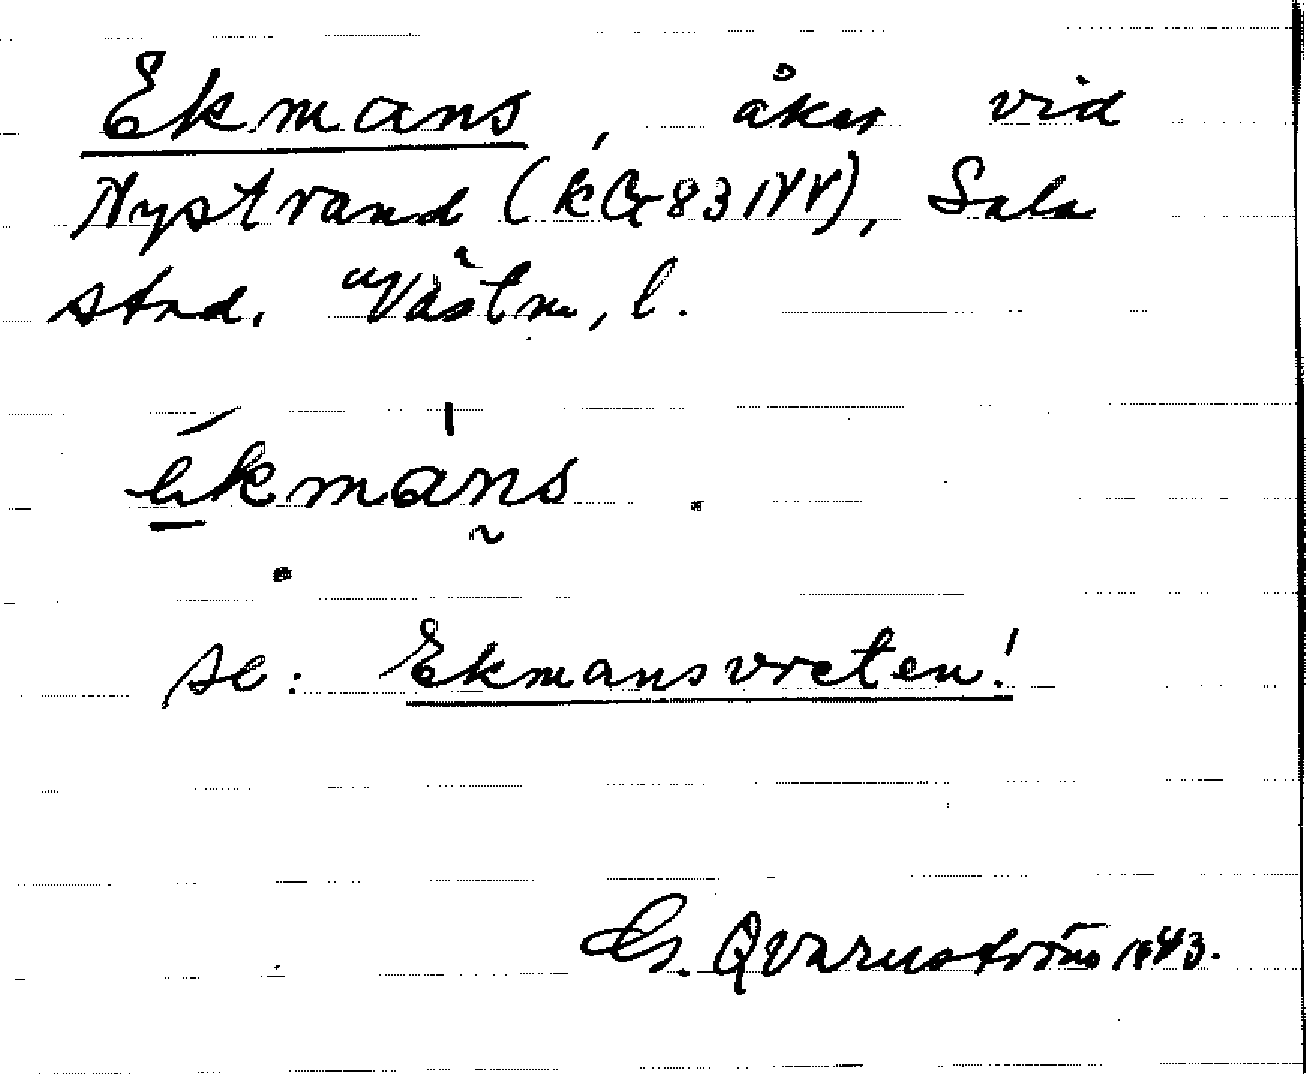 Ekmans, åker vid
Nystrand (k G-83), Sala
stad. Västm, l.
èkmáns
se: Ekmansvreten!
G. Qvarnström 1943.